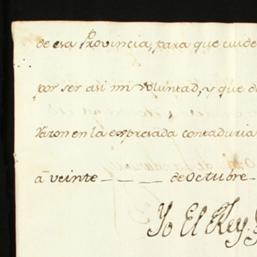 de esa Provincia, para que cuide
por ser asi mi Voluntad, y que d
Razon en la expresada contaduria
à veinte _ _ _ de Octubre
Yo El Rey.